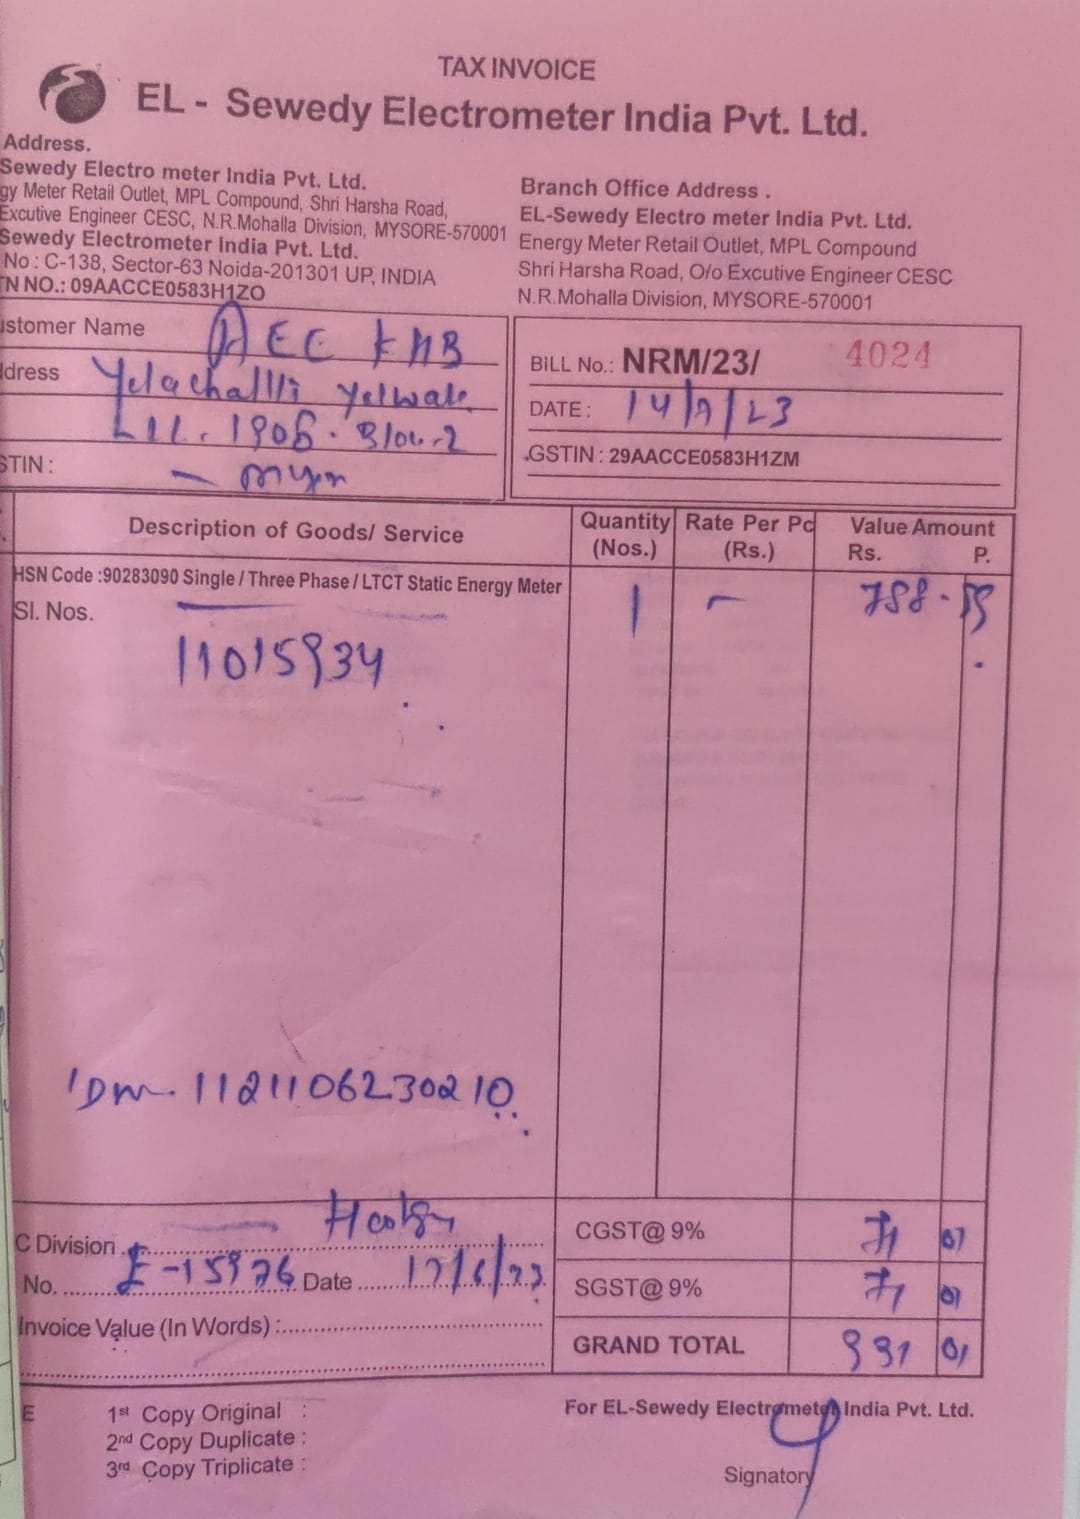 TAX INVOICE
EL - Sewedy Electrometer India Pvt. Ltd.
Address.
Sewedy Electro meter India Pvt. Ltd.
gy Meter Retail Outlet, MPL Compound, Shri Harsha Road,
Excutive Engineer CESC, N.R.Mohalla Division, MYSORE-570001
Sewedy Electrometer India Pvt. Ltd.
No : C-138, Sector-63 Noida-201301 UP, INDIA
TN NO.: 09AACCE0583H1ZO
Branch Office Address .
EL-Sewedy Electro meter India Pvt. Ltd.
Energy Meter Retail Outlet, MPL Compound
Shri Harsha Road, O/o Excutive Engineer CESC
N.R.Mohalla Division, MYSORE-570001
ustomer Name AEE KHB
dress Yelachallli Yelwala
1906
STIN :
BiLL No.: NRM/23/ 4024
DATE : 14/9/23
.GSTIN : 29AACCE0583H1ZM
Description of Goods/ Service Quantity (Nos.) Rate Per Pc (Rs.) Value Amount Rs. P.
HSN Code :90283090 Single / Three Phase / LTCT Static Energy Meter 1 - 788-
Sl. Nos.
11015934
1121106230210
C Division
No. Date
Invoice Value (In Words) :
CGST@ 9% 71 01
SGST@ 9% 71 01
GRAND TOTAL 931 01
E 1st Copy Original :
2nd Copy Duplicate :
3rd Copy Triplicate :
For EL-Sewedy Electrometer India Pvt. Ltd.
Signatory